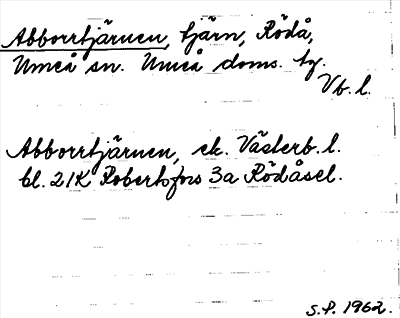 Abborrtjärnen, tjärn, Rödå,
Umeå sn. Umeå doms. tg.
Vb. l.
Abborrtjärnen, ek. Västerb. l.
bl. 21K Robertsfors 3a Rödåsel.
S.P. 1962.